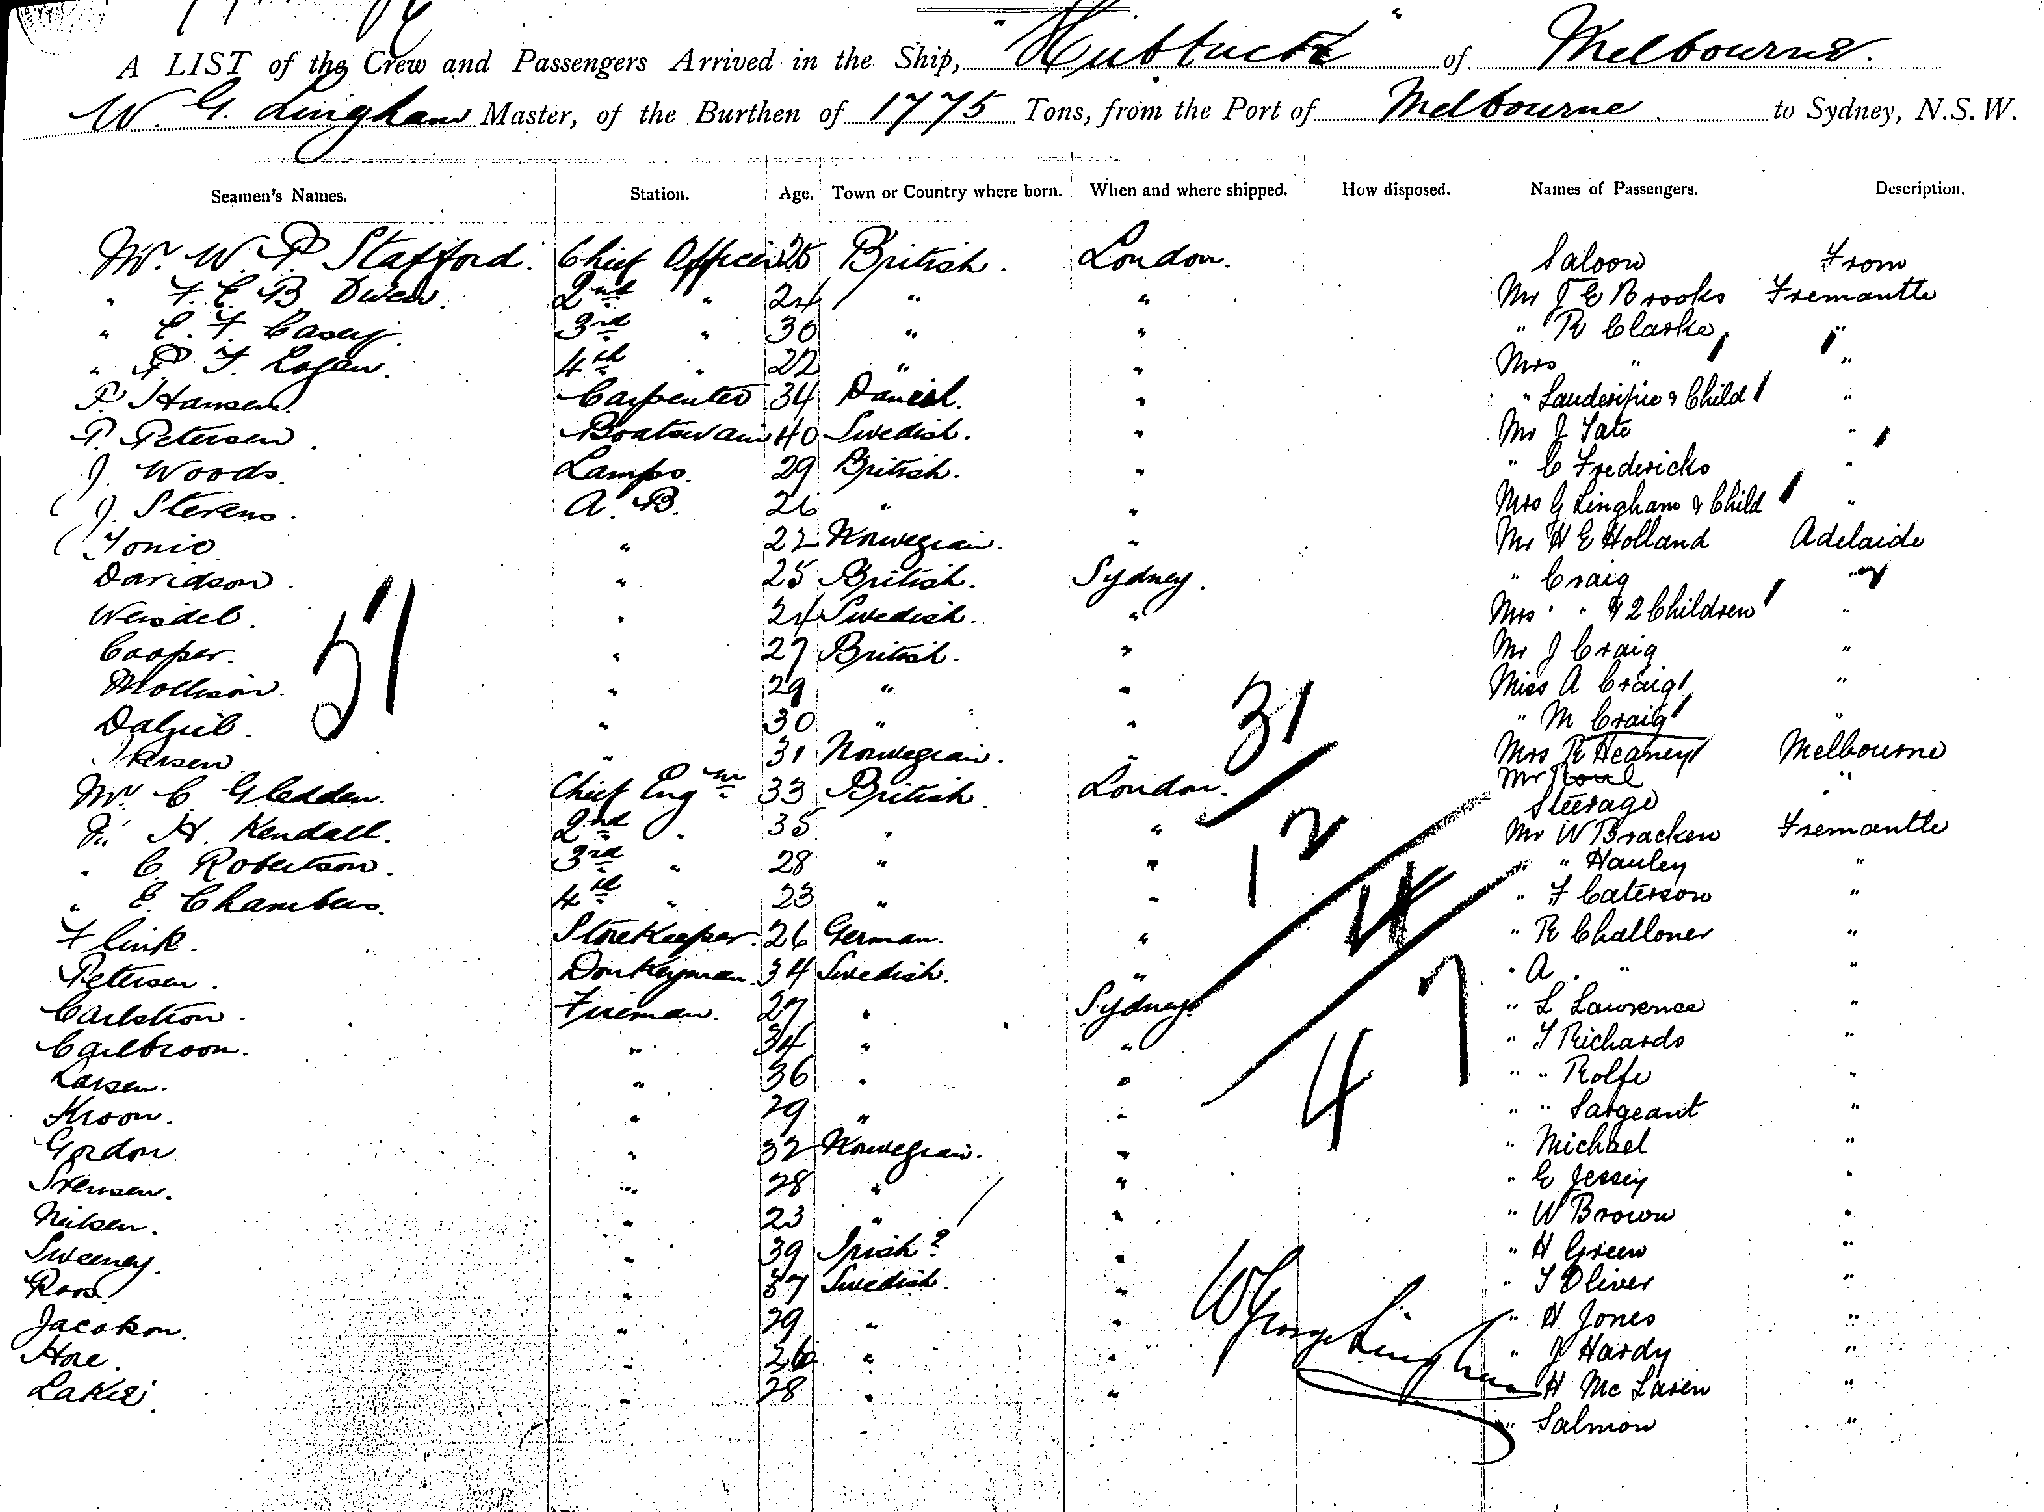 A LIST of the Crew and Passengers Arrived in the Ship, " " of Melbourne.
W. G. Lingham Master, of the Burthen of 1775 Tons, from the Port of Melbourne to Sydney, N.S.W.
Seamen's Names. Station. Age. Town or Country where born. When and where shipped. How disposed. Names of Passengers. Description.
Mr. W. P. Stafford. Chief Officer 25 British. London. Saloon From
" F. C. B. Owen. 2nd " 24 " " Mr J E Brooks Fremantle
" C. F. Casey. 3rd " 30 " " " R Clarke "
" P. F. Logan. 4th " 22 " " Mrs " "
P. Hansen. Carpenter 34 Danish. " " & Child "
P. Petersen. Boatswain 40 Swedish. " Mr J Tate "
J. Woods. Lamps. 29 British. " " C Fredericks "
J. Stevens. A. B. 26 " " Mrs G Lingham & Child "
" 22 Norwegian. " Mr H E Holland Adelaide
Davidson. " 25 British. Sydney. " Craig "
" 24 Swedish. " Mrs " & 2 Children "
Cooper. " 27 British. " Mr J Craig "
Mollison. " 29 " " Miss A Craig "
" 30 " " " M Craig "
" 31 Norwegian. " Mrs R Heaney Melbourne
Mr. C Gledden. Chief Engnr 33 British. London. Mr "
Steerage
H. Kendall. 2nd " 35 " " Mr W Bracken Fremantle
" C. Robertson. 3rd " 28 " " " " Hanley "
" E. Chambers. 4th " 23 " " " F Caterson "
Storekeeper. 26 German. " " R Challoner "
Petersen. Donkeyman. 34 Swedish. " " A " "
Fireman. 27 " Sydney " L Lawrence "
" 34 " " " T Richards "
Larsen. " 36 " " " " Rolfe "
Kroon. " 29 " " " " Sargeant "
Gordon " 32 Norwegian. " " Michael "
Svensen. " 28 " " " E Jessey "
Neilsen. " 23 " " " W Brown "
Sweeney. " 39 Irish? " " H Green "
Roos. " 37 Swedish. " " T Oliver "
" 29 " " " H Jones "
Hore. " 26 " " " J Hardy "
" 28 " " " H Mc Laren "
" Salmon "
51
31
12
4
7
4
W George Lingham